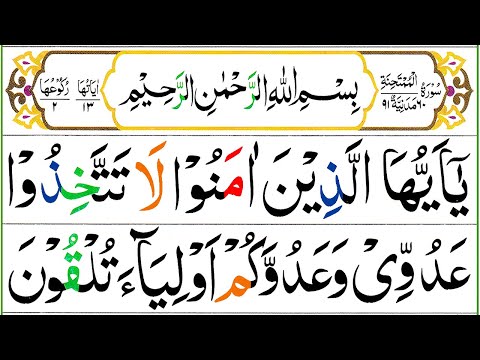 سُوْرَةُ الْمُمْتَحِنَةِ مَدَنِيَّةٌ ٦٠ ٩١
بِسْمِ اللّٰهِ الرَّحْمٰنِ الرَّحِيْمِ
اٰيَاتُهَا ١٣ رُكُوْعُهَا ٢
يٰۤاَيُّهَا الَّذِيْنَ اٰمَنُوْا لَا تَتَّخِذُوْا
عَدُوِّىْ وَعَدُوَّكُمْ اَوْلِيَآءَ تُلْقُوْنَ